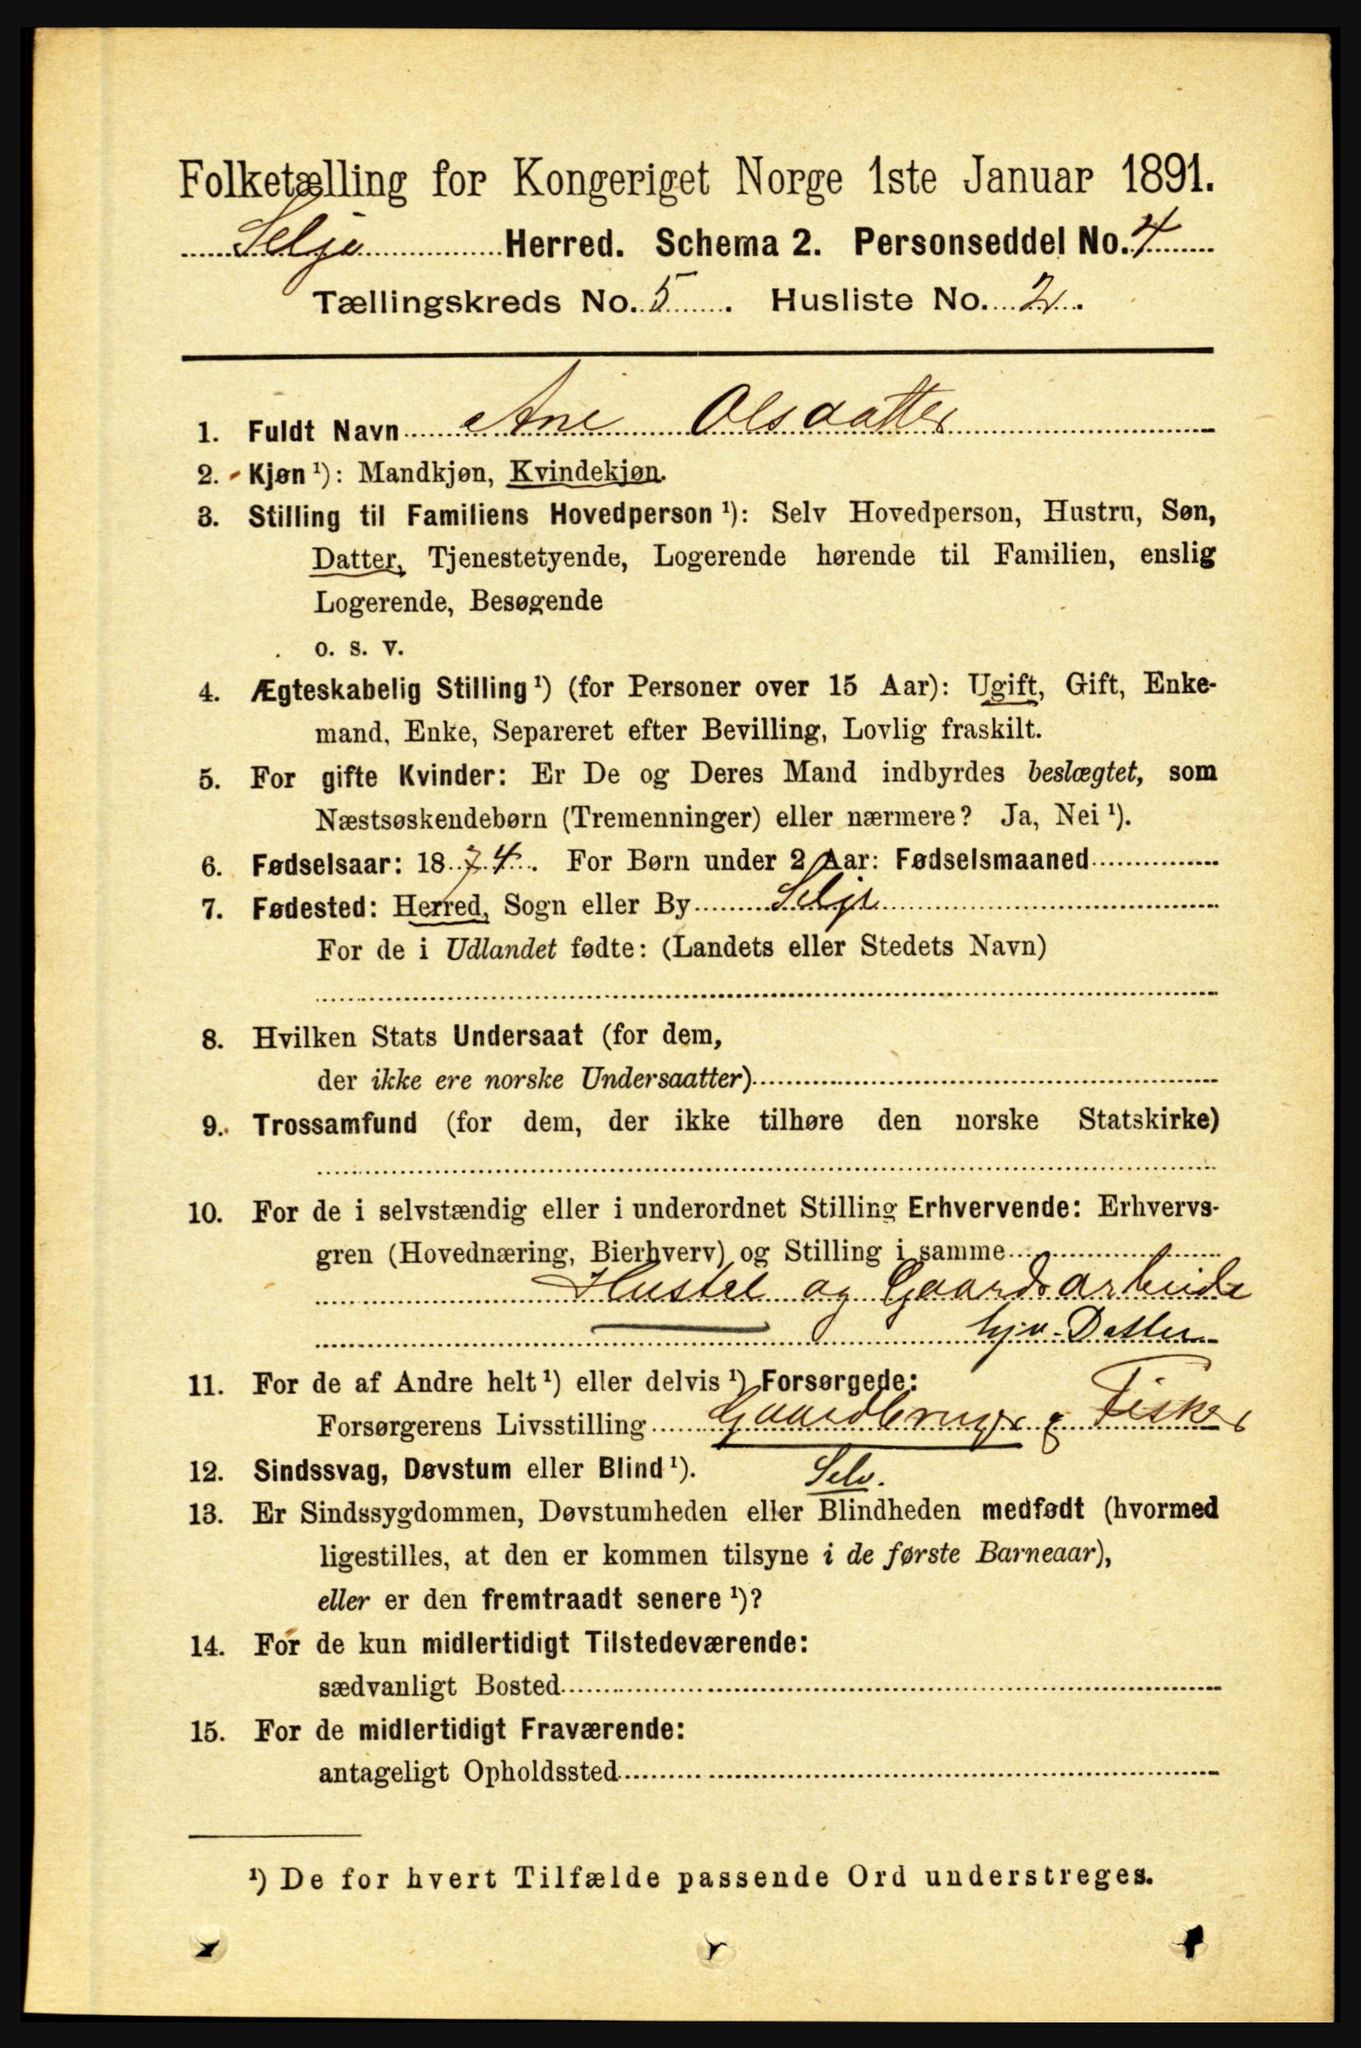 Folketælling for Kongeriget Norge 1ste Januar 1891.
Selje Herred. Schema 2. Personseddel No. 4
Tællingskreds No. 5. Husliste No. 2.
1. Fuldt Navn Ane Olsdatter
2. Kjøn ¹): Mandkjøn, Kvindekjøn.
3. Stilling til Familiens Hovedperson ¹): Selv Hovedperson, Hustru, Søn,
Datter, Tjenestetyende, Logerende hørende til Familien, enslig
Logerende, Besøgende
o. s. v.
4. Ægteskabelig Stilling ¹) (for Personer over 15 Aar): Ugift, Gift, Enke-
mand, Enke, Separeret efter Bevilling, Lovlig fraskilt.
5. For gifte Kvinder: Er De og Deres Mand indbyrdes beslægtet, som
Næstsøskendebørn (Tremenninger) eller nærmere? Ja, Nei ¹).
6. Fødselsaar: 1874. For Børn under 2 Aar: Fødselsmaaned
7. Fødested: Herred, Sogn eller By Selje
For de i Udlandet fødte: (Landets eller Stedets Navn)
8. Hvilken Stats Undersaat (for dem,
der ikke ere norske Undersaatter)
9. Trossamfund (for dem, der ikke tilhøre den norske Statskirke)
10. For de i selvstændig eller i underordnet Stilling Erhvervende: Erhvervs-
gren (Hovednæring, Bierhverv) og Stilling i samme
Hustel og Gaardsarbeide
hjv. Datter
11. For de af Andre helt ¹) eller delvis ¹) Forsørgede:
Forsørgerens Livsstilling Gaardbruger & Fisker
12. Sindssvag, Døvstum eller Blind ¹). Selv.
13. Er Sindssygdommen, Døvstumheden eller Blindheden medfødt (hvormed
ligestilles, at den er kommen tilsyne i de første Barneaar),
eller er den fremtraadt senere ¹)?
14. For de kun midlertidigt Tilstedeværende:
sædvanligt Bosted
15. For de midlertidigt Fraværende:
antageligt Opholdssted
¹) De for hvert Tilfælde passende Ord understreges.